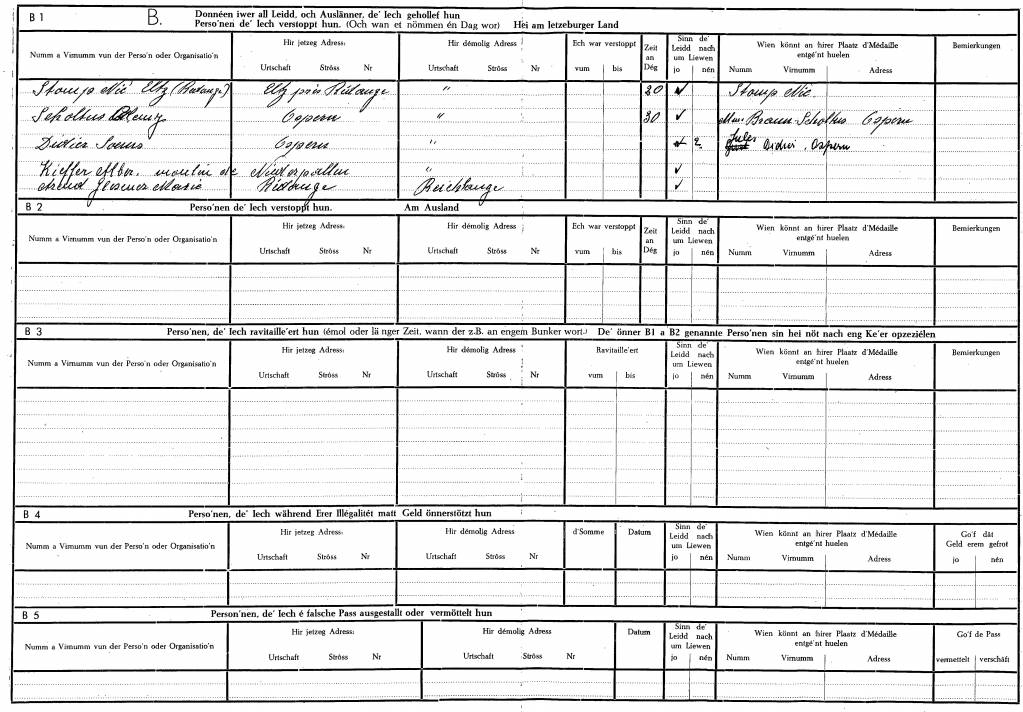 B 1 B. Donnéen iwer all Leidd, och Auslänner, de' Iech gehollef hun
Perso'nen de' Iech verstoppt hun. (Och wan et nömmen én Dag wor) Hei am Letzeburger Land
Numm a Virnumm vun der Perso'n oder Organisatio'n Hir jetzeg Adress: Hir démolig Adress Ech war verstoppt Zeit an Dég Sinn de' Leidd nach um Liewen Wien könnt an hirer Plaatz d'Médaille entgé'nt huelen Bemierkungen
Urtschaft Ströss Nr Urtschaft Ströss Nr vum bis jo nén Numm Virnumm Adress
Stomp Nic Eltz (Redange) Eltz près Rédange " 20 ✓ Stomp Nic.
Scholtus Ospern " 30 ✓ Mme Braun-Scholtus Ospern
Didier Ospern " ✓ 2 Jules Ospern
Kieffer Alber. moulin de Niederpallen " ✓
Marie Rédange Reichlange ✓
B 2 Perso'nen de' Iech verstoppt hun. Am Ausland
Numm a Virnumm vun der Perso'n oder Organisatio'n Hir jetzeg Adress: Hir démolig Adress Ech war verstoppt Zeit an Dég Sinn de' Leidd nach um Liewen Wien könnt an hirer Plaatz d'Médaille entgé'nt huelen Bemierkungen
Urtschaft Ströss Nr Urtschaft Ströss Nr vum bis jo nén Numm Virnumm Adress
B 3 Perso'nen, de' Iech ravitaille'ert hun (émol oder länger Zeit, wann der z.B. an engem Bunker wort.) De' önner B1 a B2 genannte Perso'nen sin hei nöt nach eng Ke'er opzeziélen
Numm a Virnumm vun der Perso'n oder Organisatio'n Hir jetzeg Adress: Hir démolig Adress Ravitaille'ert Sinn de' Leidd nach um Liewen Wien könnt an hirer Plaatz d'Médaille entgé'nt huelen Bemierkungen
Urtschaft Ströss Nr Urtschaft Ströss Nr vum bis jo nén Numm Virnumm Adress
B 4 Perso'nen, de' Iech während Erer Illégalitét matt Geld önnerstötzt hun
Numm a Virnumm vun der Perso'n oder Organisatio'n Hir jetzeg Adress: Hir démolig Adress d'Somme Datum Sinn de' Leidd nach um Liewen Wien könnt an hirer Plaatz d'Médaille entgé'nt huelen Go'f dät Geld erem gefrot
Urtschaft Ströss Nr Urtschaft Ströss Nr jo nén Numm Virnumm Adress jo nén
B 5 Person'nen, de' Iech é falsche Pass ausgestallt oder vermöttelt hun
Numm a Virnumm vun der Perso'n oder Organisatio'n Hir jetzeg Adress: Hir démolig Adress Datum Sinn de' Leidd nach um Liewen Wien könnt an hirer Plaatz d'Médaille entgé'nt huelen Go'f de Pass
Urtschaft Ströss Nr Urtschaft Ströss Nr jo nén Numm Virnumm Adress vermettelt verschäft